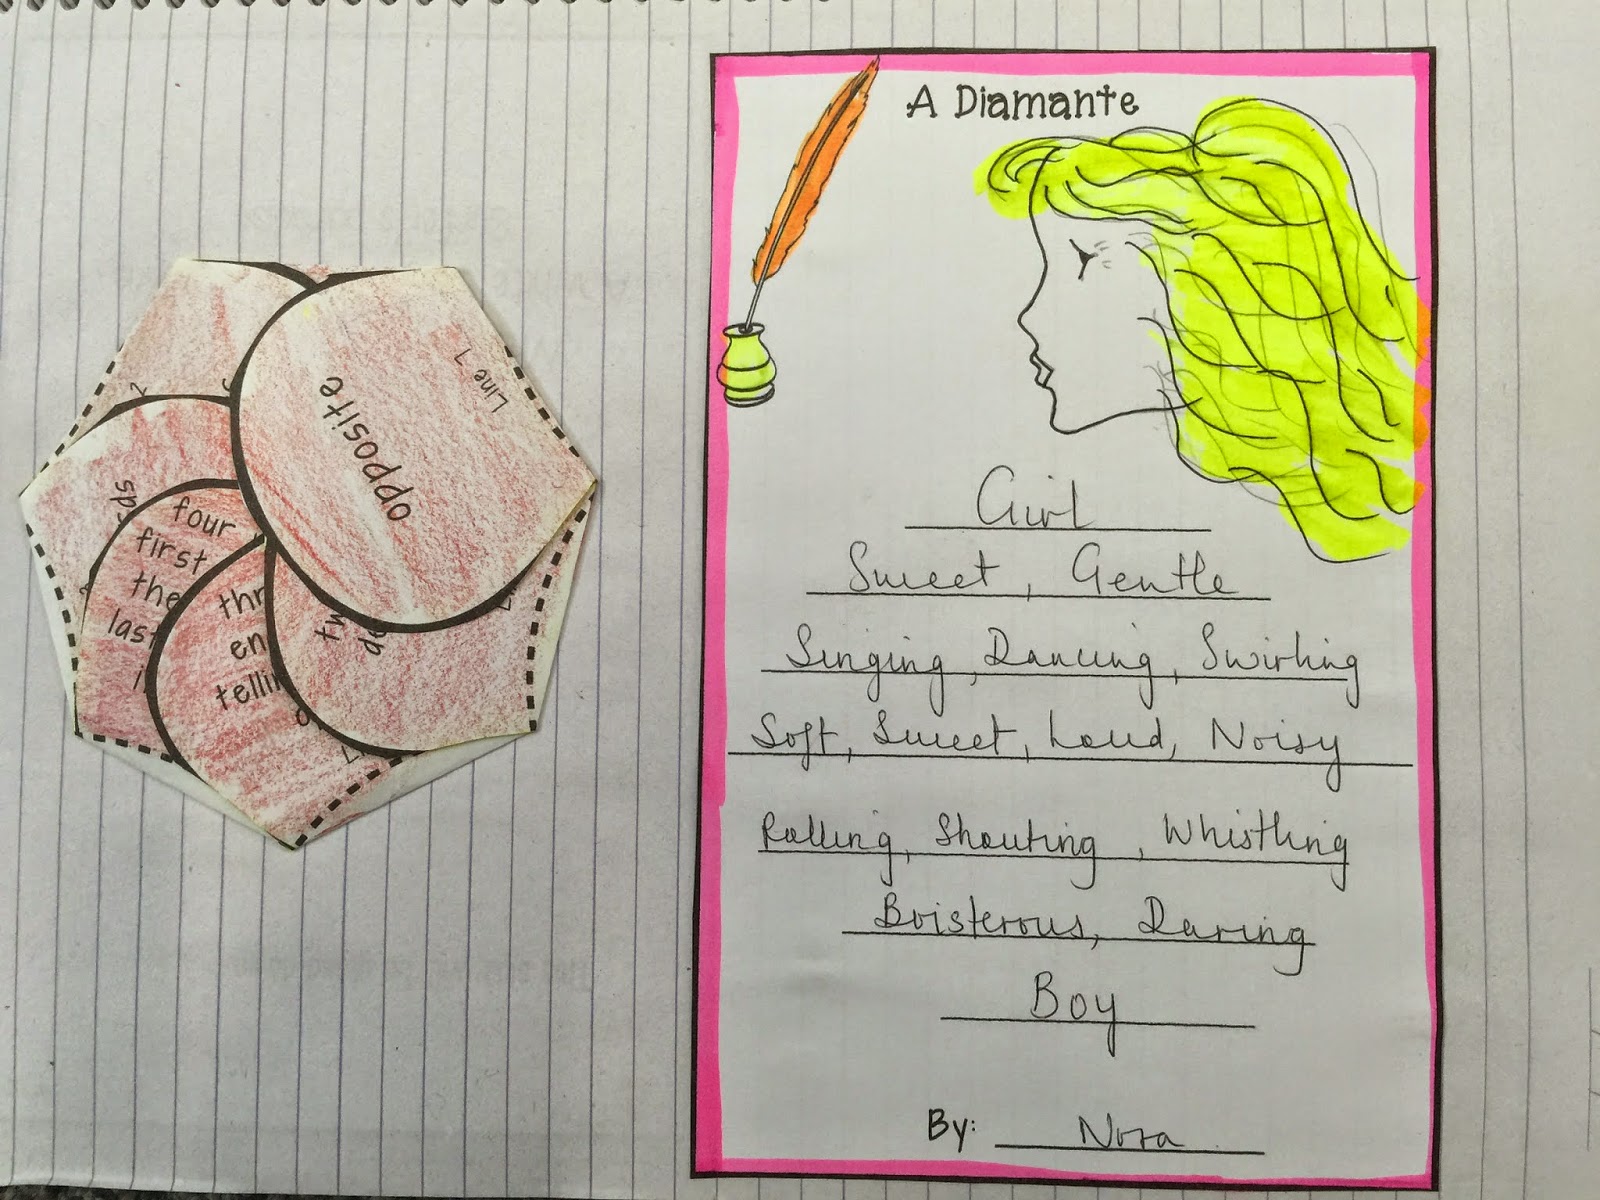 opposite
Line 7
four
first
the
last
A Diamante
Girl
Sweet, Gentle
Singing, Dancing, Swirling
Soft, Sweet, Loud, Noisy
Rolling, Shouting, Whistling
Boisterous, Daring
Boy
By: Nora